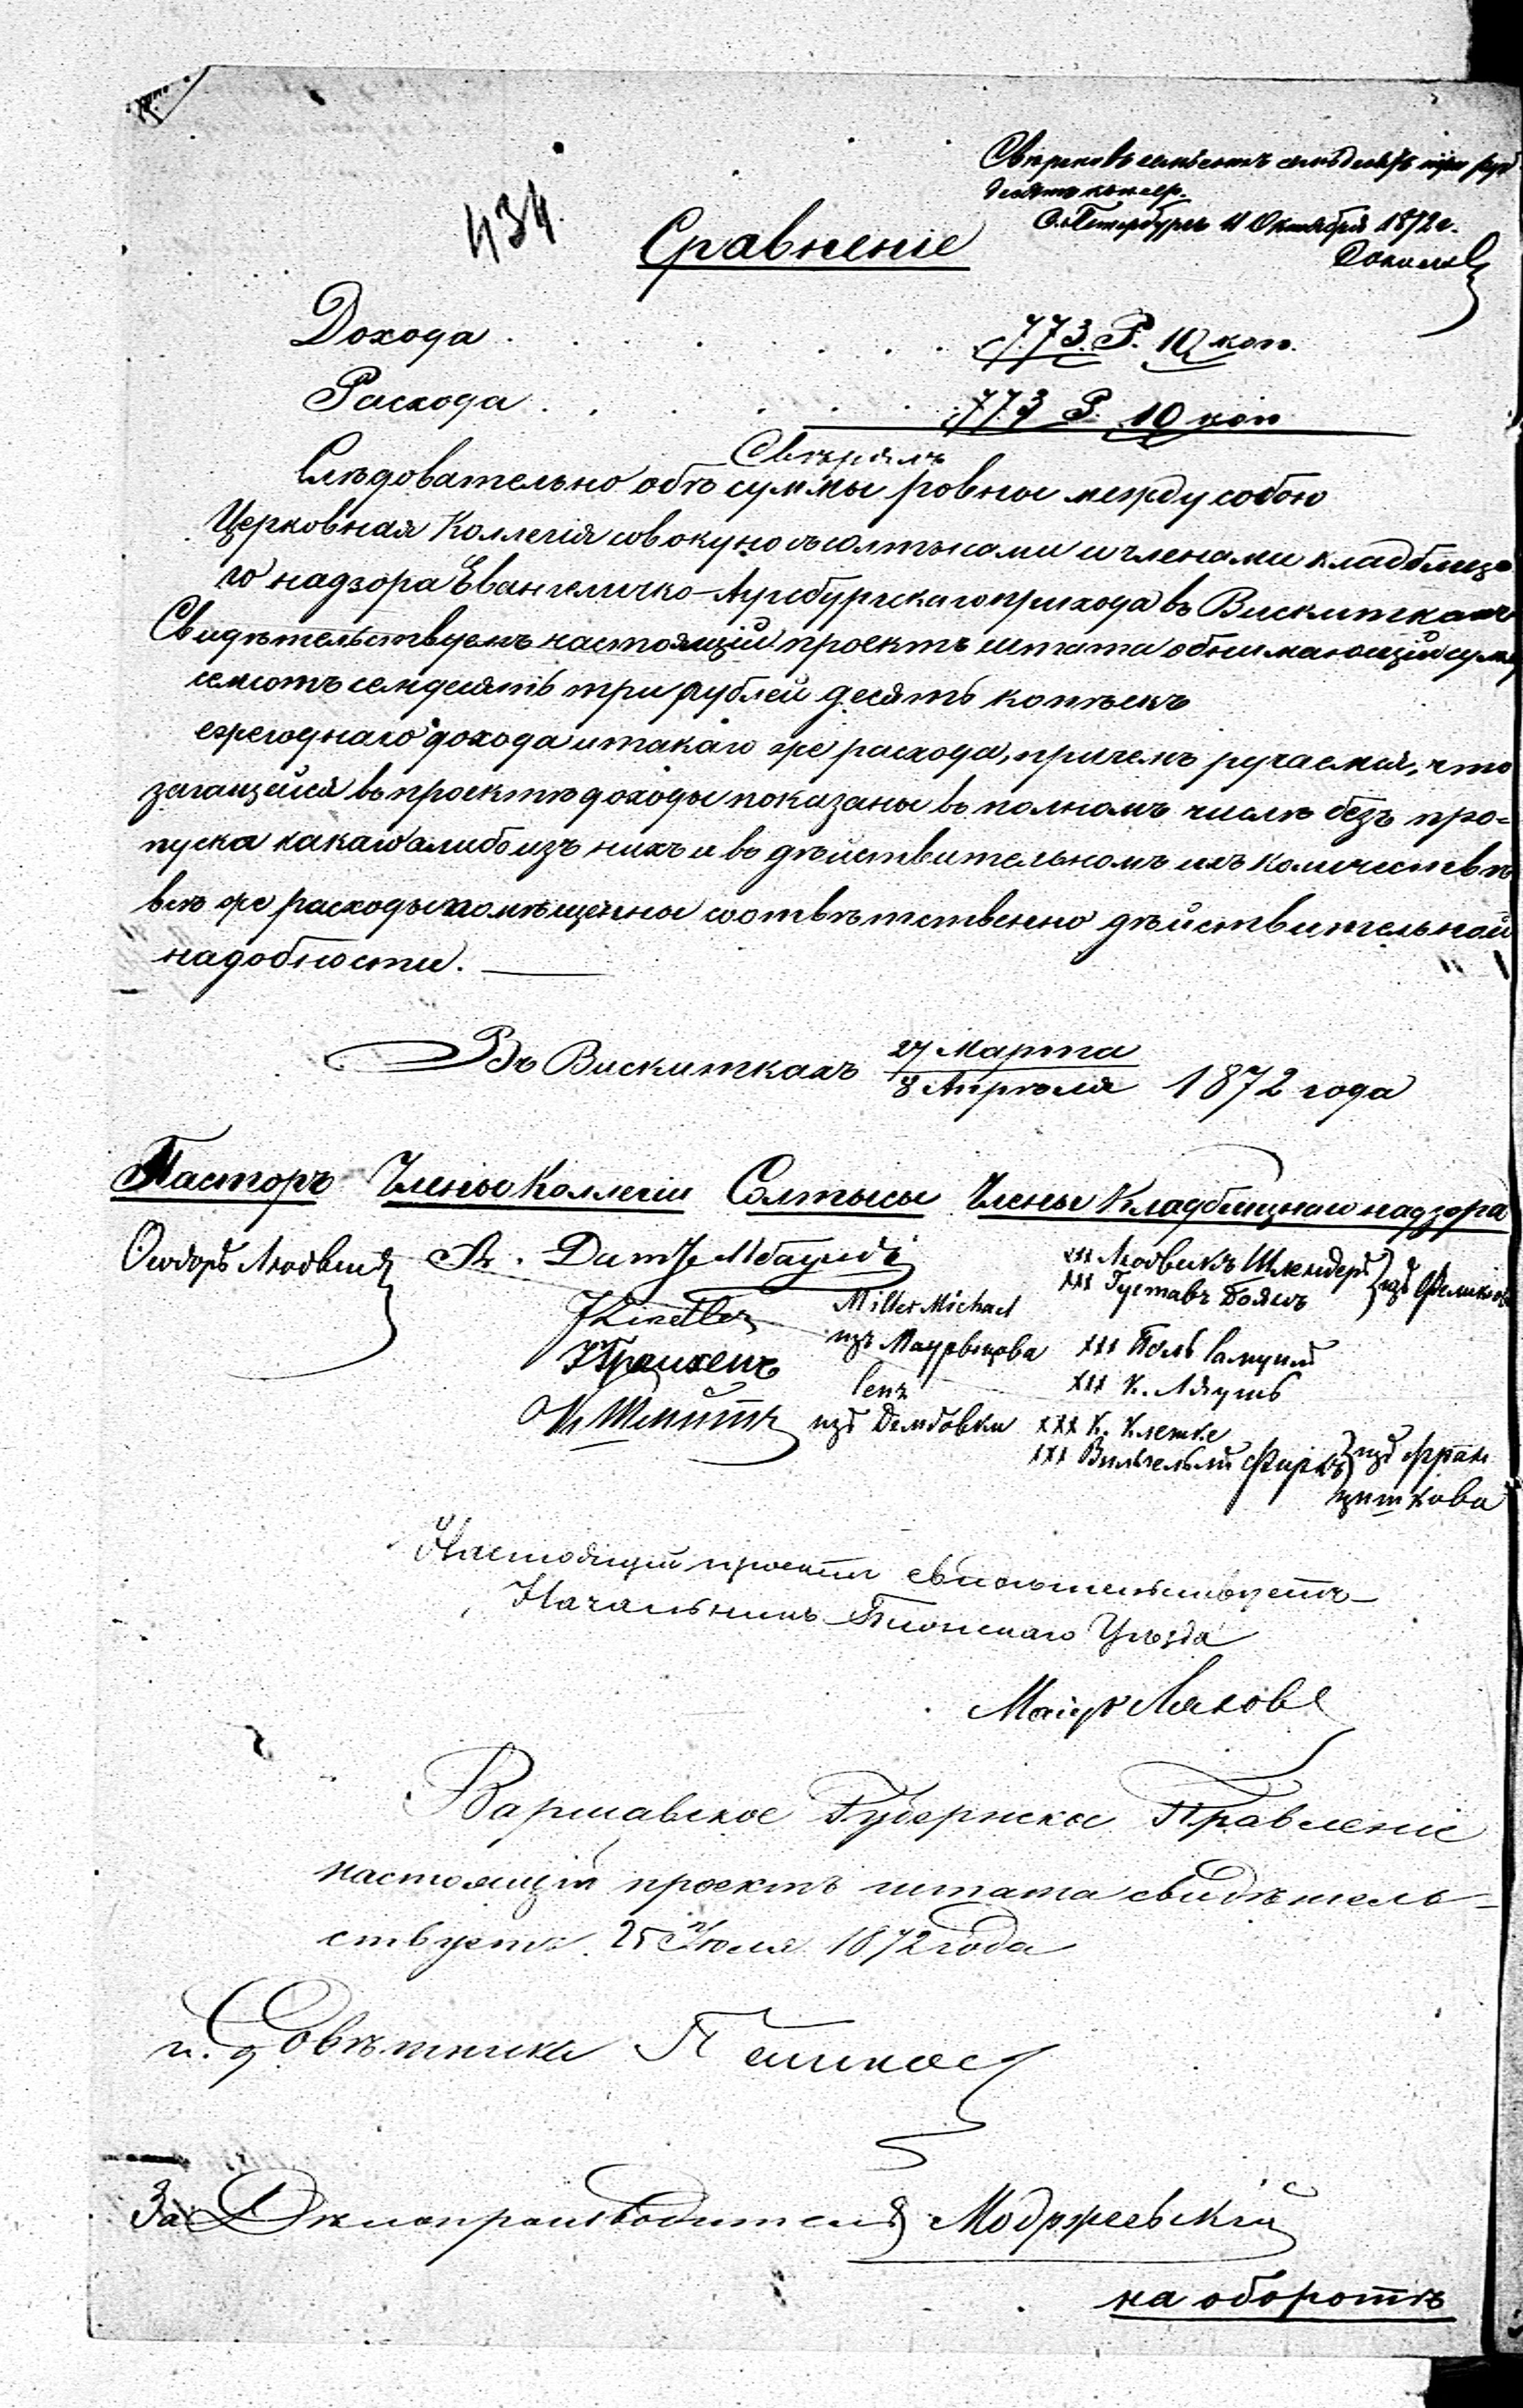 434.
семьсотъ семьдесятъ три руб
десять коп. сер.
С. Петербургъ 11 Октября 1872 г.
Сравненіе
Дохода . . . . . . . . 773. Р. 10 коп.
Расхода . . . . . . . 773 Р. 10 коп
Свѣрялъ
Слѣдовательно обѣ суммы ровные между собою
Церковная Коллегія совокупно съ солтысами и членами кладбищна
го надзора Евангеличко-Аугсбургскаго прихода въ Вискиткахъ
Свидѣтельствуемъ настоящій проектъ штата обнимающій сумму
семсотъ семдесятъ три рублей десять копѣекъ
ежегоднаго дохода и такаго же расхода, причемъ ручаемся, что
въ проектѣ доходы показаны въ полномъ числѣ безъ про-
пуска какаго либо изъ нихъ и въ дѣйствительномъ ихъ количествѣ
всѣ же расходы помѣщенные соотвѣтственно дѣйствительной
надобности.
Въ Вискиткахъ 27 Марта
8 Апрѣля 1872 года
Пасторъ Члены Коллегіи Солтысы Члены Кладбищнаго надзора
Ѳеодоръ Людвигъ
xxx Людвикъ Шлендеръ
xxx Густавъ
Miller Michael
изъ
xxx
xxx К.
Lenz
изъ Дембовки
xxx К. Клетке
xxx Вильгельмъ
изъ Фран
цишкова
Настоящій проектъ свидѣтельствуетъ
Начальникъ Блонскаго Уѣзда
Маіоръ Ляховъ
Варшавское Губернское Правленіе
настоящій проектъ штата свидѣтель-
ствуетъ. 25 Іюля 1872 года
и. д. Совѣтника
За Дѣлопроизводителя Модржеевскій
на оборотѣ